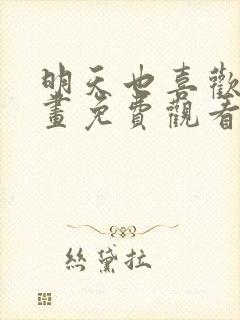 明天也喜歡
畫免費觀看
絲黛拉